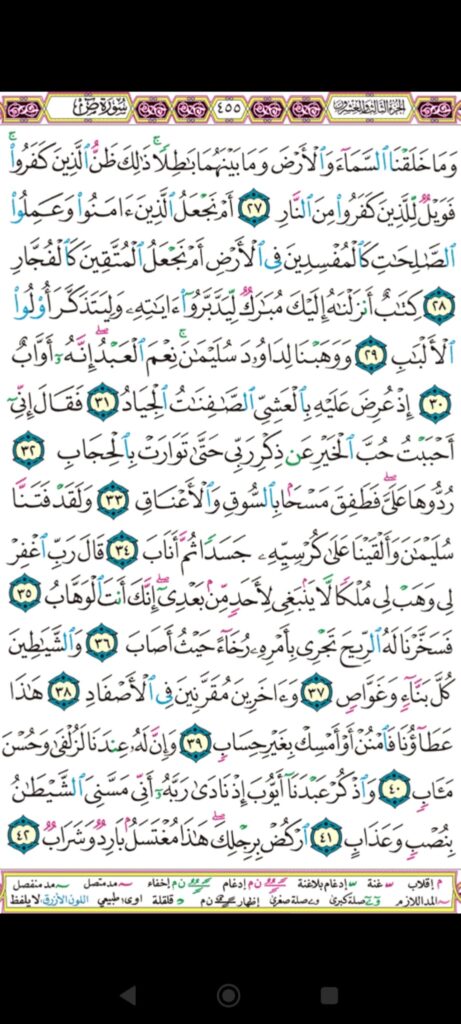 الجزء الثالث والعشرون ٤٥٥ سورة ص
وَمَا خَلَقْنَا ٱلسَّمَآءَ وَٱلْأَرْضَ وَمَا بَيْنَهُمَا بَٰطِلًا ۚ ذَٰلِكَ ظَنُّ ٱلَّذِينَ كَفَرُوا۟ ۚ
فَوَيْلٌ لِّلَّذِينَ كَفَرُوا۟ مِنَ ٱلنَّارِ ٢٧ أَمْ نَجْعَلُ ٱلَّذِينَ ءَامَنُوا۟ وَعَمِلُوا۟
ٱلصَّٰلِحَٰتِ كَٱلْمُفْسِدِينَ فِى ٱلْأَرْضِ أَمْ نَجْعَلُ ٱلْمُتَّقِينَ كَٱلْفُجَّارِ
٢٨ كِتَٰبٌ أَنزَلْنَٰهُ إِلَيْكَ مُبَٰرَكٌ لِّيَدَّبَّرُوٓا۟ ءَايَٰتِهِۦ وَلِيَتَذَكَّرَ أُو۟لُوا۟
ٱلْأَلْبَٰبِ ٢٩ وَوَهَبْنَا لِدَاوُۥدَ سُلَيْمَٰنَ ۚ نِعْمَ ٱلْعَبْدُ ۖ إِنَّهُۥٓ أَوَّابٌ
٣٠ إِذْ عُرِضَ عَلَيْهِ بِٱلْعَشِىِّ ٱلصَّٰفِنَٰتُ ٱلْجِيَادُ ٣١ فَقَالَ إِنِّىٓ
أَحْبَبْتُ حُبَّ ٱلْخَيْرِ عَن ذِكْرِ رَبِّى حَتَّىٰ تَوَارَتْ بِٱلْحِجَابِ ٣٢
رُدُّوهَا عَلَىَّ ۖ فَطَفِقَ مَسْحًۢا بِٱلسُّوقِ وَٱلْأَعْنَاقِ ٣٣ وَلَقَدْ فَتَنَّا
سُلَيْمَٰنَ وَأَلْقَيْنَا عَلَىٰ كُرْسِيِّهِۦ جَسَدًا ثُمَّ أَنَابَ ٣٤ قَالَ رَبِّ ٱغْفِرْ
لِى وَهَبْ لِى مُلْكًا لَّا يَنۢبَغِى لِأَحَدٍ مِّنۢ بَعْدِىٓ ۖ إِنَّكَ أَنتَ ٱلْوَهَّابُ ٣٥
فَسَخَّرْنَا لَهُ ٱلرِّيحَ تَجْرِى بِأَمْرِهِۦ رُخَآءً حَيْثُ أَصَابَ ٣٦ وَٱلشَّيَٰطِينَ
كُلَّ بَنَّآءٍ وَغَوَّاصٍ ٣٧ وَءَاخَرِينَ مُقَرَّنِينَ فِى ٱلْأَصْفَادِ ٣٨ هَٰذَا
عَطَآؤُنَا فَٱمْنُنْ أَوْ أَمْسِكْ بِغَيْرِ حِسَابٍ ٣٩ وَإِنَّ لَهُۥ عِندَنَا لَزُلْفَىٰ وَحُسْنَ
مَـَٔابٍ ٤٠ وَٱذْكُرْ عَبْدَنَآ أَيُّوبَ إِذْ نَادَىٰ رَبَّهُۥٓ أَنِّى مَسَّنِىَ ٱلشَّيْطَٰنُ
بِنُصْبٍ وَعَذَابٍ ٤١ ٱرْكُضْ بِرِجْلِكَ ۖ هَٰذَا مُغْتَسَلٌۢ بَارِدٌ وَشَرَابٌ ٤٢
م إقلاب غنة إدغام بلاغنة ن م إدغام ن م إخفاء مد متصل مد منفصل
المد اللازم صلة كبرى صلة صغرى إظهار ن م قلقلة اوى: طبيعي اللون الأزرق: لا يلفظ